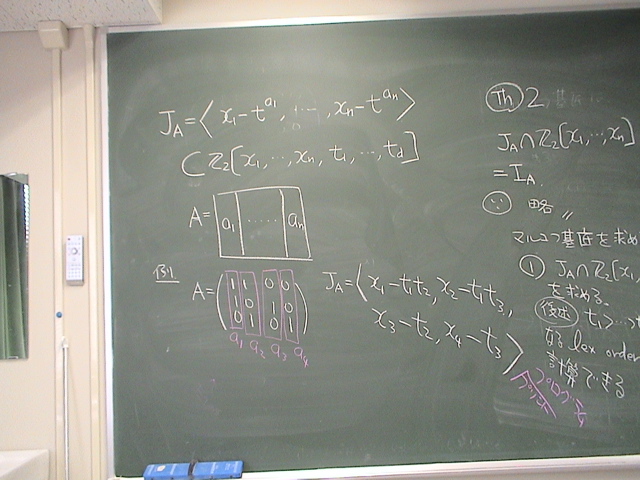 J_A = ⟨ x_1 - t^{a_1}, ..., x_n - t^{a_n} ⟩
⊂ Z_2[x_1, ..., x_n, t_1, ..., t_d]
A = [a_1 | ...... | a_n]
例1
A = (1 1 0 0
1 0 1 0
0 1 0 1)
a_1 a_2 a_3 a_4
J_A = ⟨ x_1 - t_1t_2, x_2 - t_1t_3,
x_3 - t_2, x_4 - t_3 ⟩
Th 2
J_A ∩ Z_2[x_1, ..., x_n]
= I_A.
∵ 略 〃
マルコフ基底を求め
① J_A ∩ Z_2[x_1
を求める.
t_1 > ...
lex order
計算できる